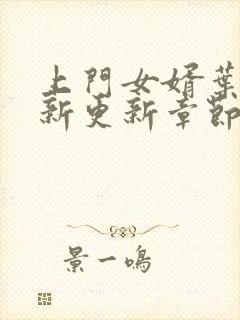 上門女婿葉
新更新章節
景一鳴